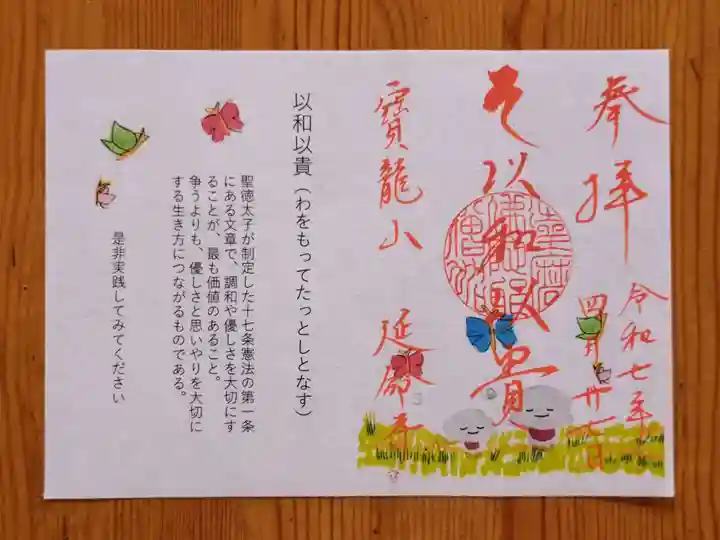 奉拝
令和七年
四月廿七日
以和以貴
寶龍山
延命寺
以和以貴（わをもってたっとしとなす）
聖徳太子が制定した十七条憲法の第一条
にある文章で、調和や優しさを大切にす
ることが、最も価値のあること。
争うよりも、優しさと思いやりを大切に
する生き方につながるものである。
是非実践してみてください